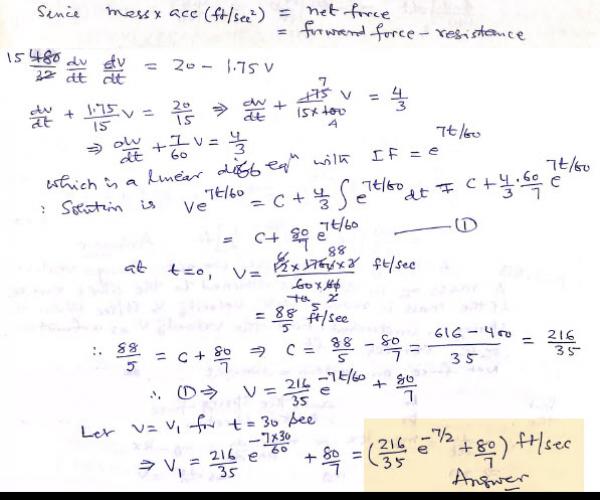 Since mass x acc (ft/sec²) = net force
= forward force - resistance
15 480/32 dv/dt dv/dt = 20 - 1.75 v
dv/dt + 1.75/15 v = 20/15 ⇒ dv/dt + 7 175/15×100 4 v = 4/3
⇒ dv/dt + 7/60 v = 4/3
which is a linear diff eqⁿ with IF = e^7t/60
∴ Solution is ve^7t/60 = C + 4/3 ∫ e^7t/60 dt = C + 4/3 · 60/7 e^7t/60
= C + 80/7 e^7t/60 — ①
at t=0, V = 6 12 × 1760 88 × 3 / 60 × 60 10 5 2 ft/sec
= 88/5 ft/sec
∴ 88/5 = C + 80/7 ⇒ C = 88/5 - 80/7 = 616 - 400/35 = 216/35
∴ ① ⇒ V = 216/35 e^-7t/60 + 80/7
Let V = V₁ for t = 30 sec
⇒ V₁ = 216/35 e^-7×30/60 + 80/7 = (216/35 e^-7/2 + 80/7) ft/sec
Answer